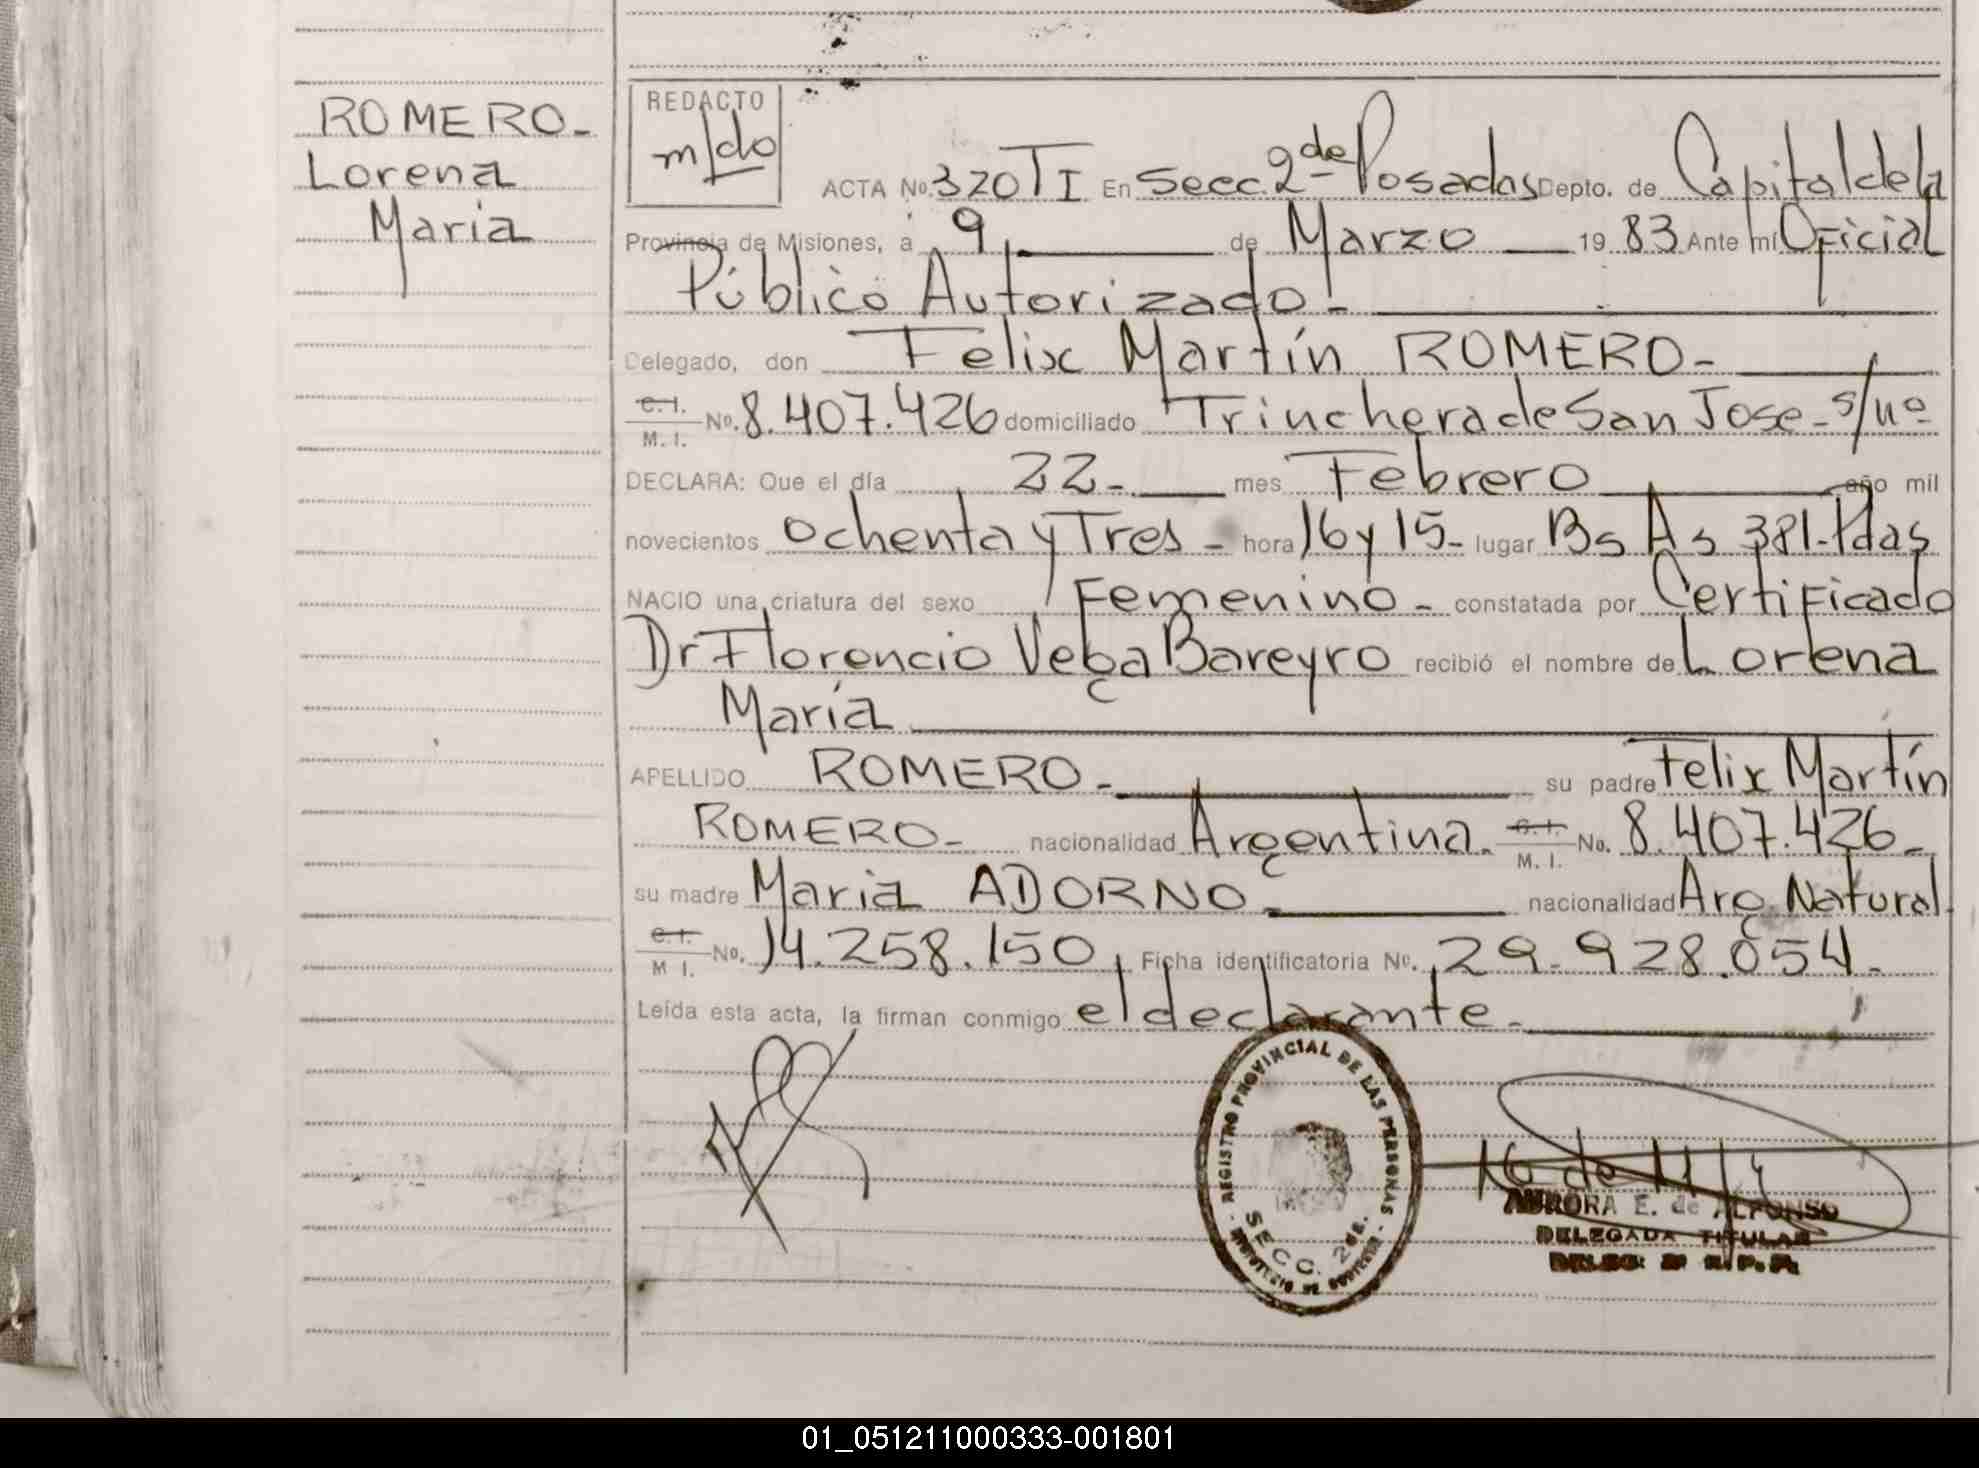 ROMERO-
Lorena
Maria
REDACTO
m/do
ACTA No. 320 TI En Secc. 2da de Posadas Depto. de Capital de la
Provincia de Misiones, a 9 de Marzo 19 83 Ante mí Oficial
Público Autorizado.-
Delegado, don Felix Martín ROMERO-
C.I.
M. I. No. 8.407.426 domiciliado Trinchera de San Jose - s/nº
DECLARA: Que el día 22- mes Febrero año mil
novecientos ochenta y Tres - hora 16 y 15- lugar Bs As 381-Pdas
NACIO una criatura del sexo Femenino - constatada por Certificado
Dr Florencio Vega Bareyro recibió el nombre de Lorena
María
APELLIDO ROMERO - su padre Felix Martín
ROMERO- nacionalidad Argentina. C.I.
M. I. No. 8.407.426-
su madre Maria ADORNO- nacionalidad Arg. Natural.
C.I.
M I. No. 14.258.150 Ficha identificatoria No. 29.928.054.-
Leída esta acta, la firman conmigo el declarante.-
REGISTRO PROVINCIAL DE LAS PERSONAS
SECC. 2da.
MINISTERIO DE GOBIERNO
AURORA E. de ALFONSO
DELEGADA TITULAR
DELEG. 2ª R. P. P.
01_051211000333-001801